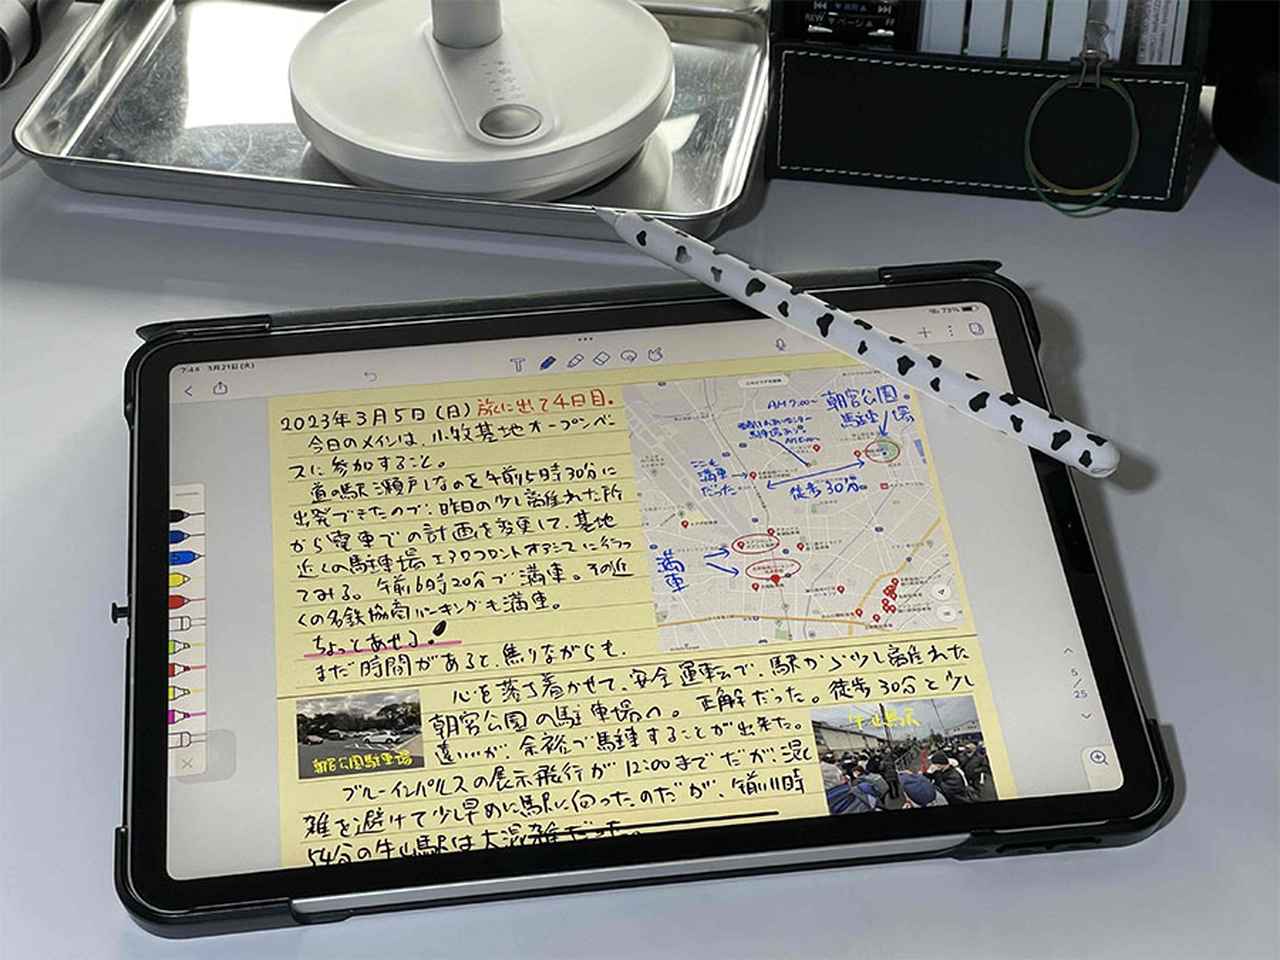 REW ▼ページ▲
7:44 3月21日(火)
73%
2023年3月5日(日) 旅に出て4日目。
今日のメインは、小牧基地オープンベー
スに参加すること。
道の駅瀬戸しなのを午前5時30分に
出発できたので、昨日の少し離れた所
から電車での計画を変更して、基地
近くの駐車場エアフロントオアシスに行っ
てみる。午前6時20分で満車。その近
くの名鉄協商パーキングも満車。
ちょっとあせる。
まだ時間があると、焦りながらも、
心を落ち着かせて、安全運転で、駅から少し離れた
朝宮公園の駐車場へ。正解だった。徒歩30分と少し
遠いが、余裕で駐車することが出来た。
ブルーインパルスの展示飛行が12:00までだが、混
雑を避けて少し早めに駅に向ったのだが、午前11時
54分の牛山駅は大混雑だった。
AM7:00〜 朝宮公園。
駐車場
ここも
満車
だった
徒歩30分。
満車
朝宮公園駐車場
牛山駅
5
25